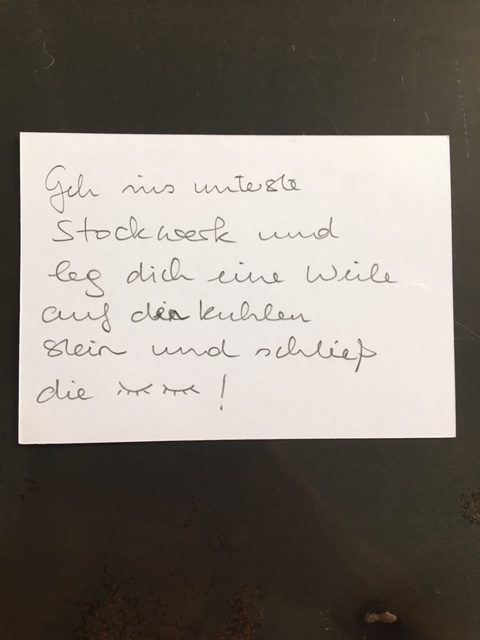 Geh ins unterste
Stockwerk und
leg dich eine Weile
auf den kuhlen
Stein und schließ
die !